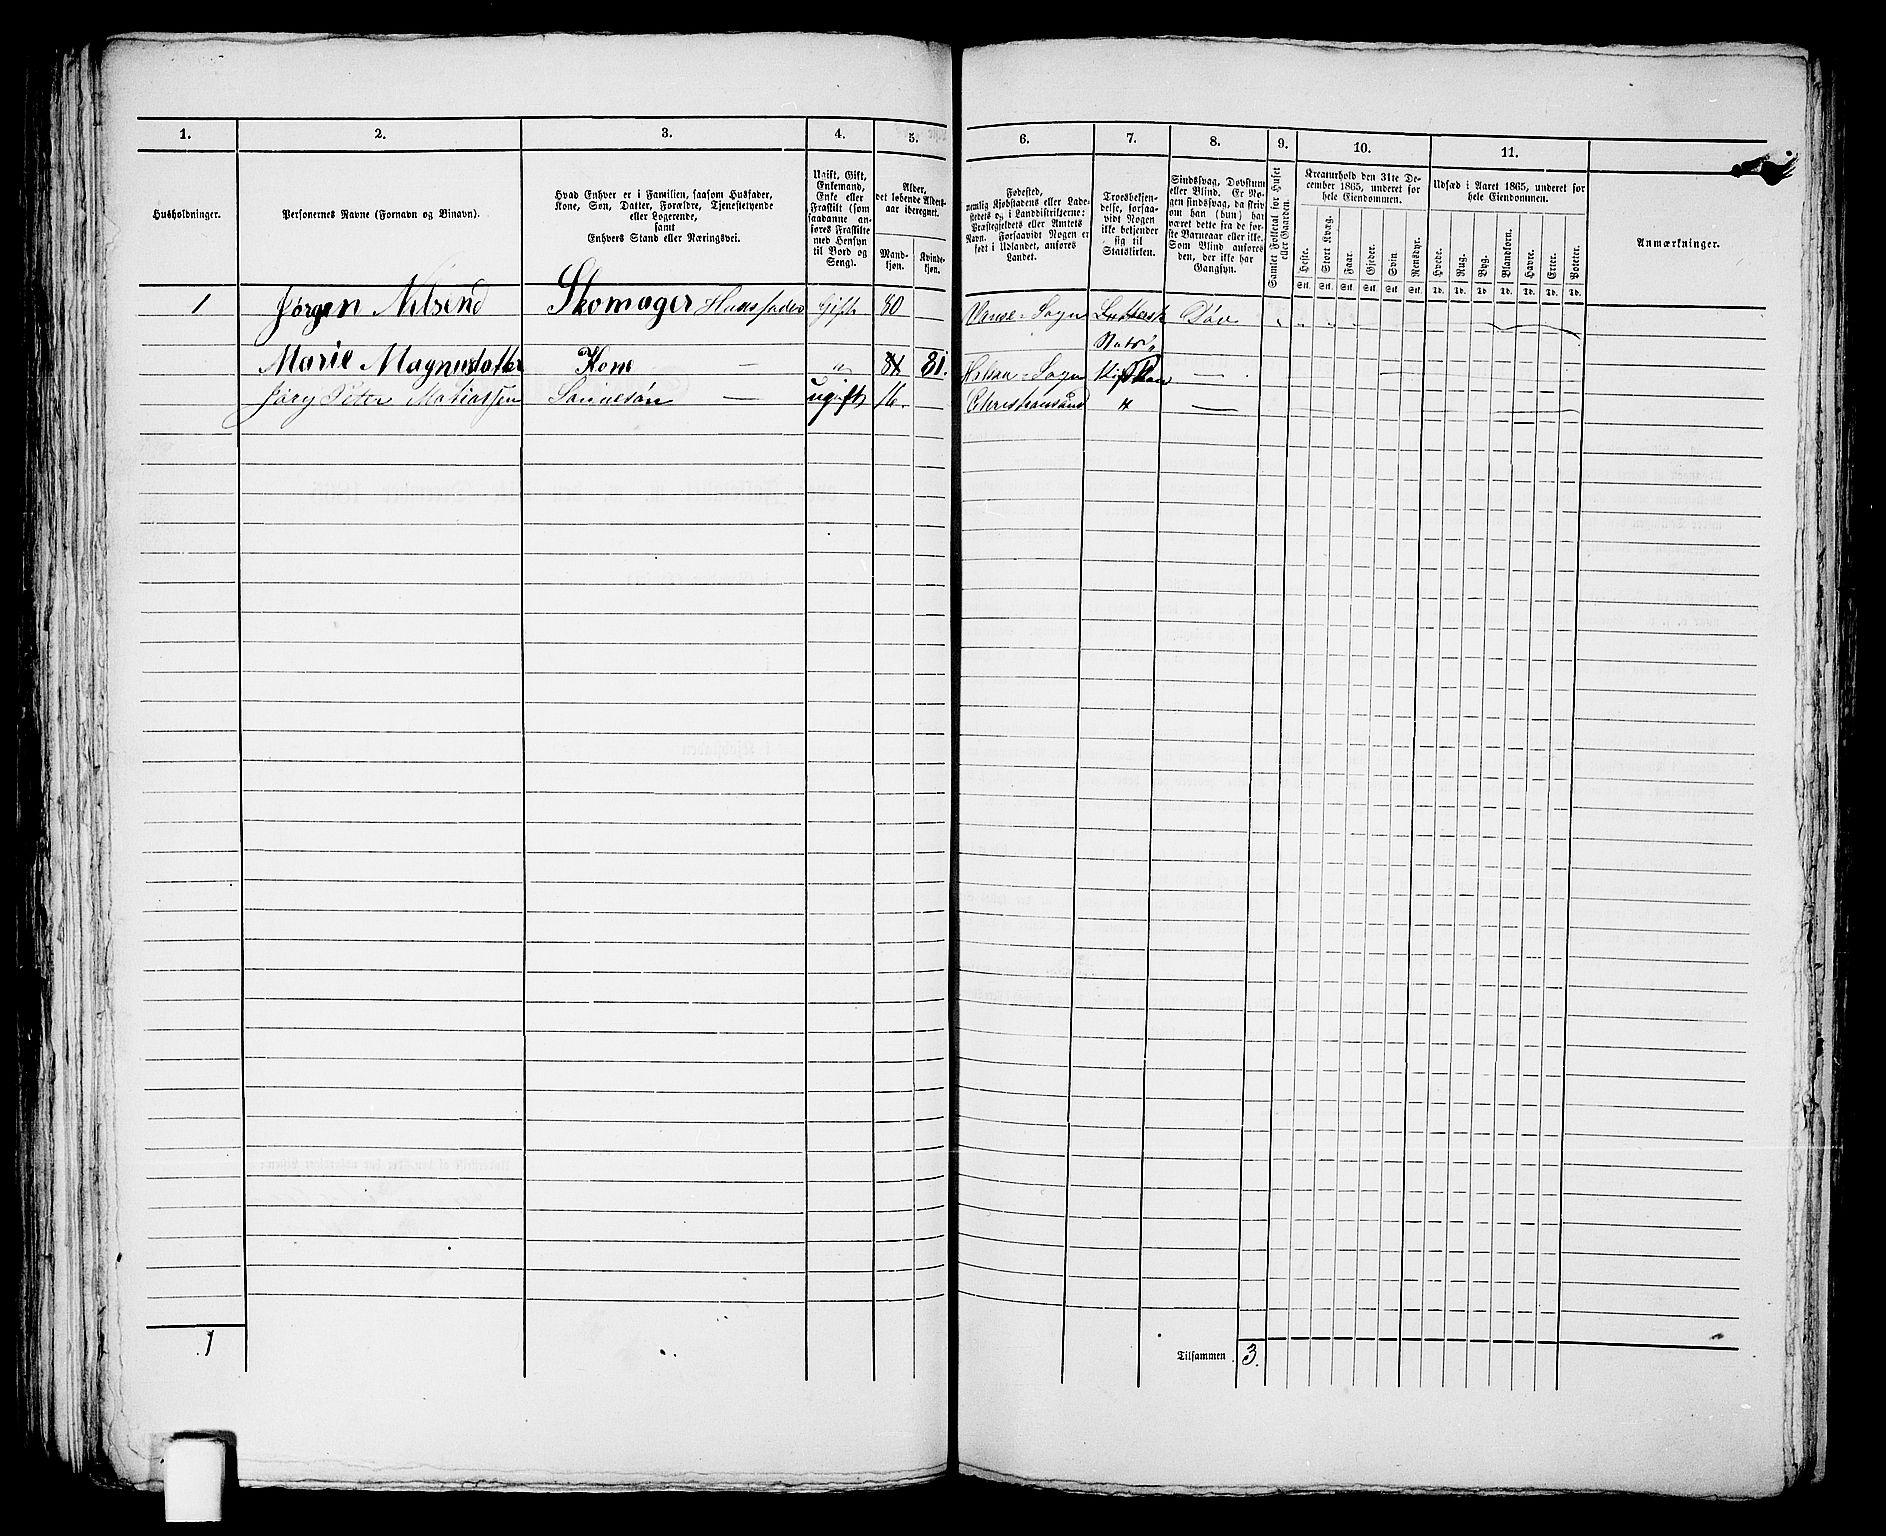 1. 2. 3. 4. 5. 6. 7. 8. 9. 10. 11.
Husholdninger.
Personernes Navne (Fornavn og Binavn).
Hvad Enhver er i Familien, saasom Husfader,
Kone, Søn, Datter, Forældre, Tjenestetyende
eller Logerende,
samt
Enhvers Stand eller Næringsvei.
Ugift, Gift,
Enkemand,
Enke eller
Fraskilt (som
saadanne an-
føres Fraskilte
med Hensyn
til Bord og
Seng).
Alder,
det løbende Alders-
aar iberegnet.
Mand-
kjøn.
Kvinde-
kjøn.
Fødested,
nemlig Kjøbstadens eller Lade-
stedets og i Landdistrikterne:
Præstegjeldets eller Amtets
Navn. Forsaavidt Nogen er
født i Udlandet, anføres
Landet.
Troesbekjen-
delse, forsaa-
vidt Nogen
ikke bekjender
sig til
Statskirken.
Sindssvag, Døvstum
eller Blind. Er No-
gen sindssvag, da skriv
om han (hun) har
været dette fra de før-
ste Barneaar eller ikke.
Som Blind anføres
den, der ikke har
Gangsyn.
Samlet Folketal for Huset
eller Gaarden.
Kreaturhold den 31te De-
cember 1865, underet for
hele Eiendommen.
Heste. Stort Kvæg. Faar. Gjeder. Svin. Rensdyr.
Stk. Stk. Stk. Stk. Stk. Stk.
Udsæd i Aaret 1865, underet for
hele Eiendommen.
Hvede. Rug. Byg. Blandkorn. Havre. Erter. Poteter.
Td. Td. Td. Td. Td. Td. Td.
Anmærkninger.
1 Jørgen Nilsen Skomager Huusfader Gift 80 Vanse Sogn Luthersk Døv
Stats
Marie Magnusdatter Kone — " 81 81. Sogn —
Peter Matiassen — ugift 16. Christiansand " —
1
Tilsammen 3.